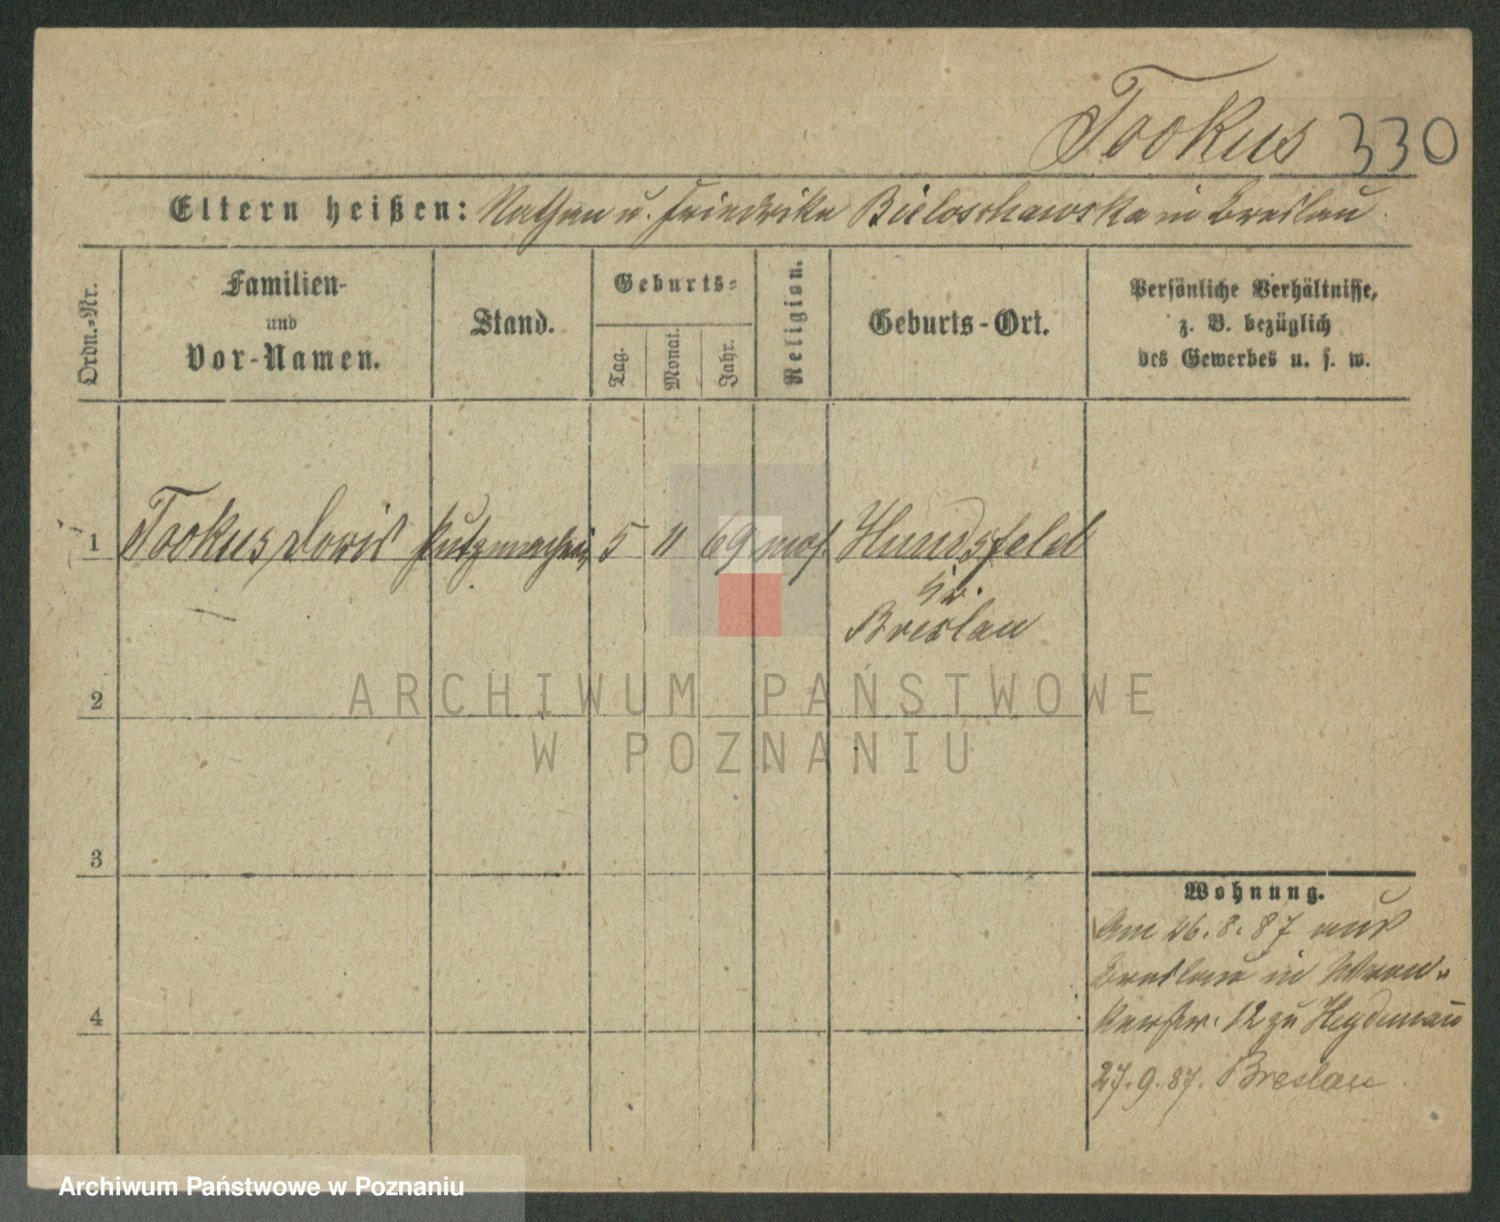 Tookus 330
Eltern heißen: Nathan u. Friedrike Bieloschawska in Breslau.
Ordn.-Nr.
Familien-
und
Vor-Namen.
Stand.
Geburts-
Tag.
Monat.
Jahr.
Religion.
Geburts-Ort.
Persönliche Verhältnisse,
z. B. bezüglich
des Gewerbes u. s. w.
1 Tookus Doris Putzmacherin 5 11 69 mos. Hundsfeld
Breslau
2
3
4
Wohnung.
Am 26. 8. 87 aus
Breslau in Wron-
kerstr. 12 zu Heydemann
27. 9. 87. Breslau
ARCHIWUM PAŃSTWOWE
W POZNANIU
Archiwum Państwowe w Poznaniu